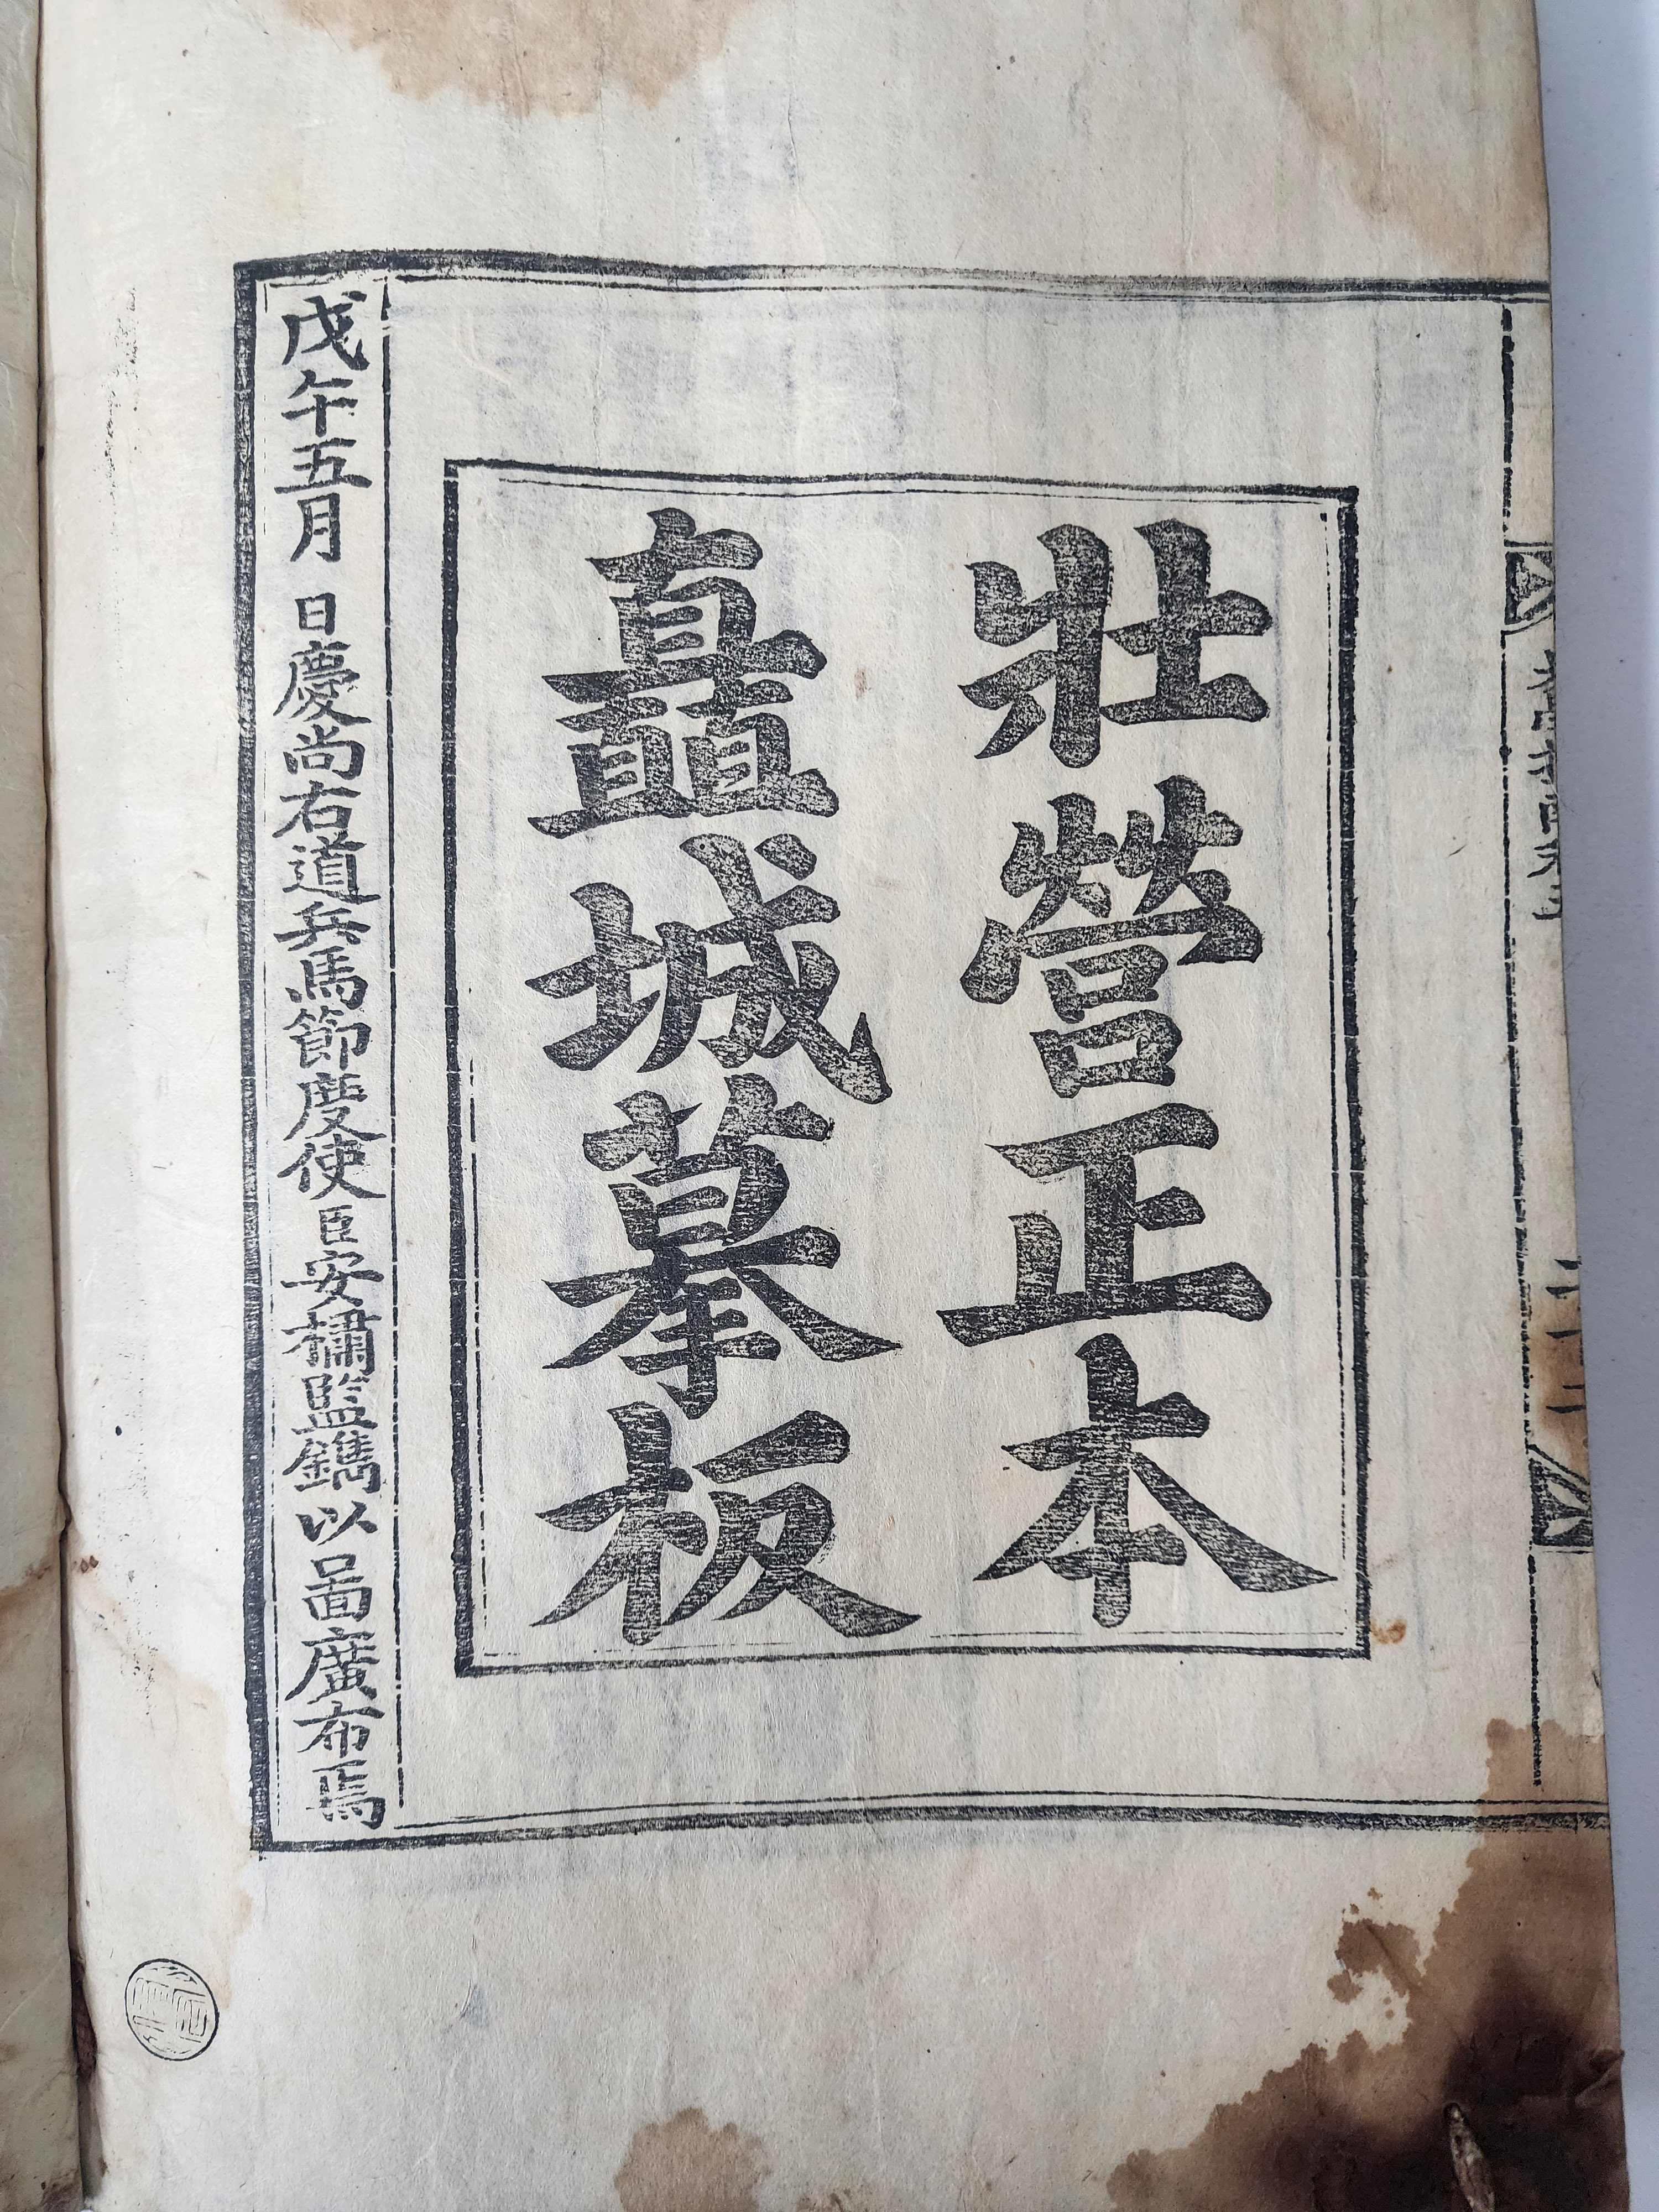 壯營正本
矗城摹板
戊午五月　日慶尚右道兵馬節度使臣安橚監鐫以啚廣布焉